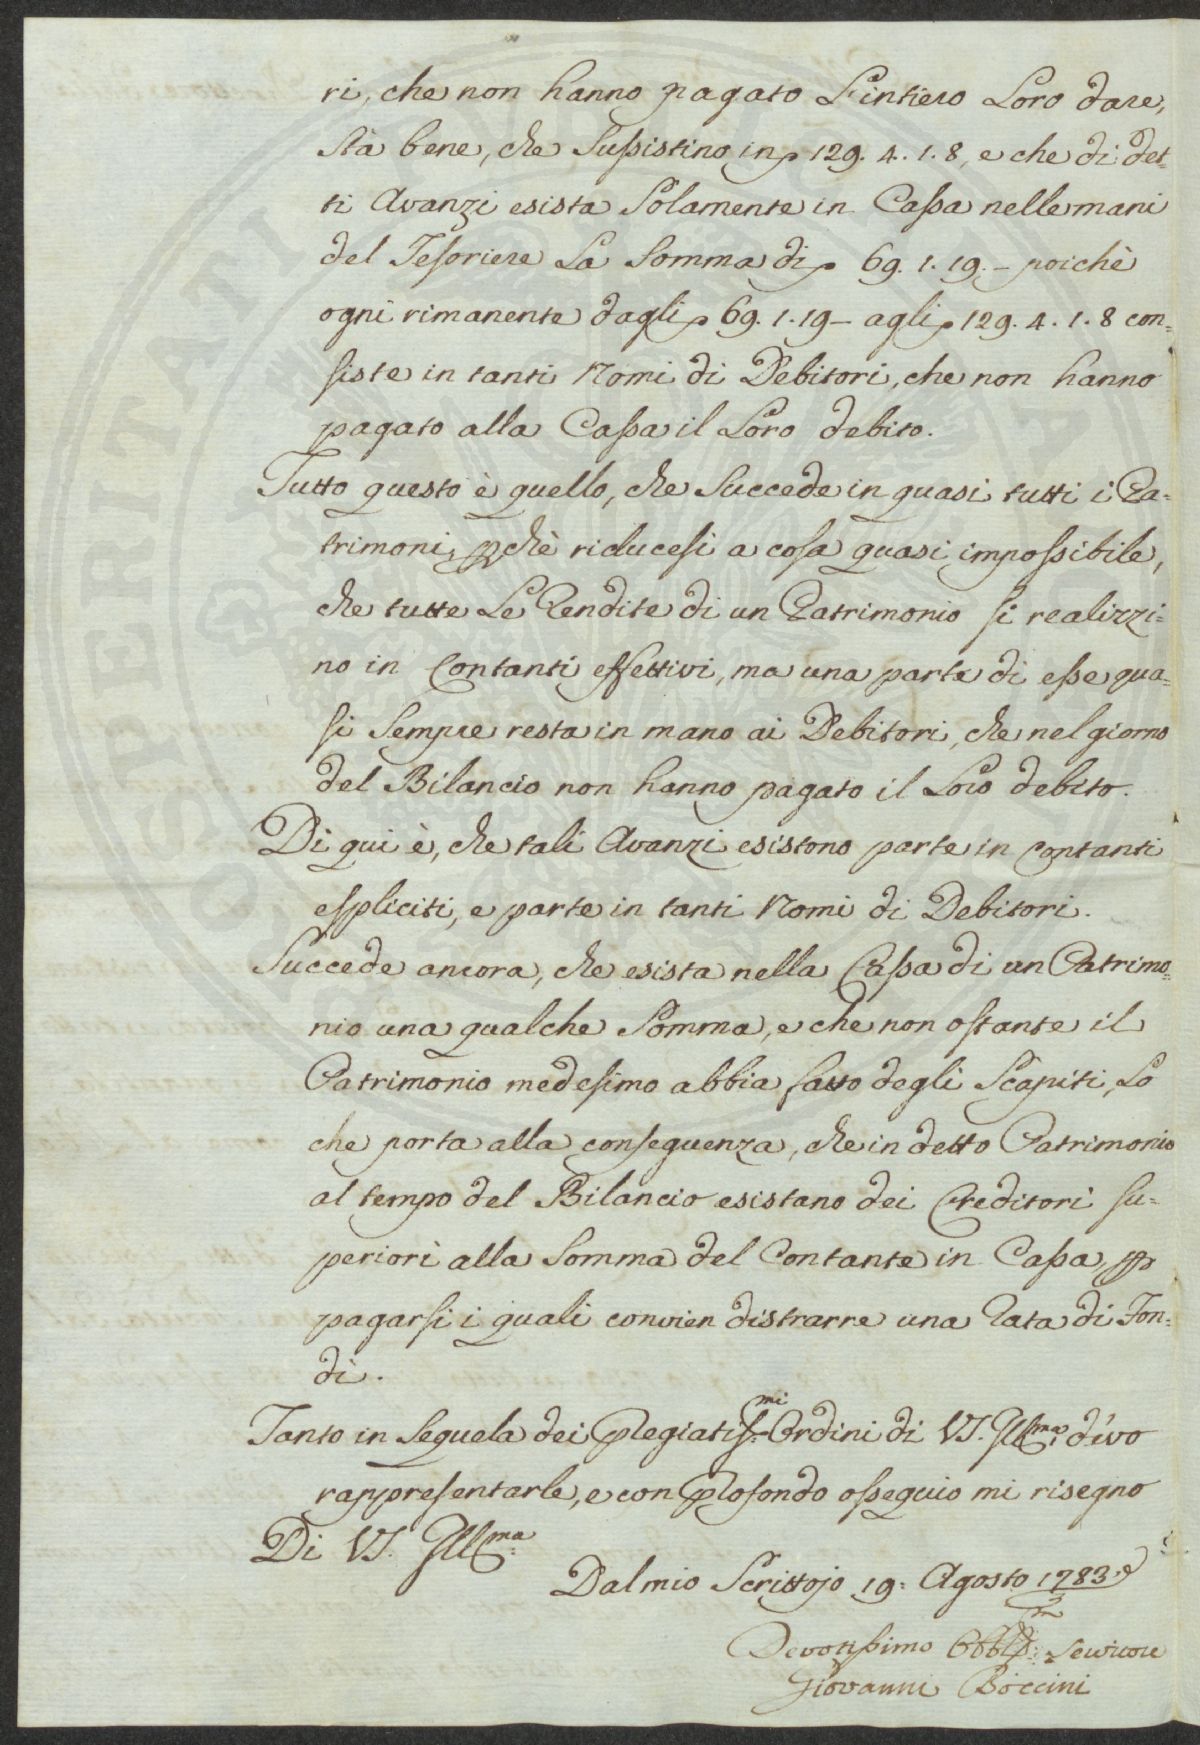 ri, che non hanno pagato L'intiero Loro dare,
stà bene, che Sussistino in 129. 4. 1. 8, e che di det-
ti Avanzi esista Solamente in Cassa nelle mani
del Tesoriere La Somma di 69. 1. 19. – poichè
ogni rimanente dagli 69. 1. 19 – agli 129. 4. 1. 8 con=
siste in tanti Nomi di Debitori, che non hanno
pagato alla Cassa il Loro debito.
Tutto questo è quello, che Succede in quasi tutti i Pa=
trimoni, pchè riducesi a cosa quasi impossibile,
che tutte Le Rendite di un Patrimonio si realizzi=
no in Contanti effettivi, ma una parte di esse qua=
si Sempre resta in mano ai Debitori, che nel giorno
del Bilancio non hanno pagato il Loro debito.
Di qui è, che tali Avanzi esistono parte in contanti
espliciti, e parte in tanti Nomi di Debitori.
Succede ancora, che esista nella Cassa di un Patrimo=
nio una qualche Somma, e che non ostante il
Patrimonio medesimo abbia fatto degli Scapiti, Lo
che porta alla conseguenza, che in detto Patrimonio
al tempo del Bilancio esistano dei Creditori su=
periori alla Somma del Contante in Cassa, p
pagarsi i quali convien distrarre una Rata di Fon=
di.
Tanto in Seguela dei Pregiatiss.mi Ordini di VS. Ill.ma devo
rappresentarle, e con profondo ossequio mi risegno
Di VS. Ill.ma
Dal mio Scrittojo 19: Agosto 1783
Devotissimo Obbl.mo Servitore
Giovanni Boccini
SIGILLUM